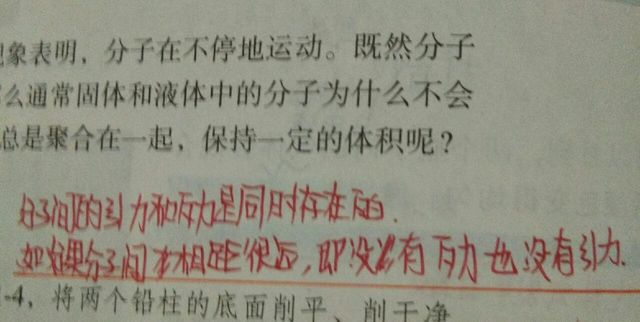 象表明，分子在不停地运动。既然分子
么通常固体和液体中的分子为什么不会
总是聚合在一起，保持一定的体积呢？
分子间的引力和斥力是同时存在的.
如果分子间本相距很远,即没有斥力也没有引力.
-4，将两个铅柱的底面削平、削干净